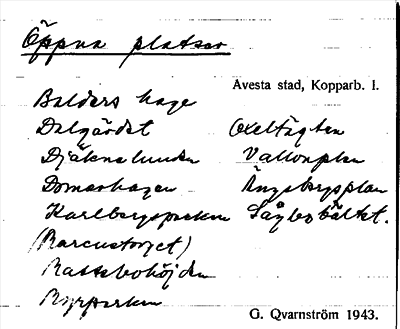 Öppna platser
Avesta stad, Kopparb. l.
Balders hage
Dalgärdet Oxeltägten
Djäknelunden Vallonplan
Domarhagen Ängsbergsplan
Karlbergsparken Sågbobältet.
(Marcustorget)
Rassbohöjden
Nyparken
G. Qvarnström 1943.